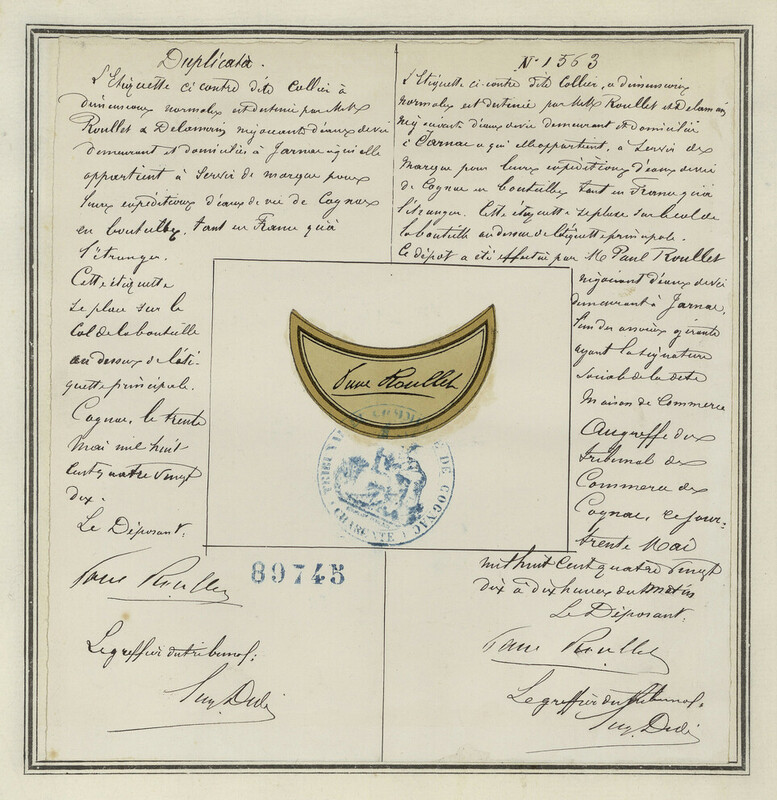 Duplicata.
L'Etiquette ci contre dite Collier à
dimensions normales est destinée par M.M.
Roullet & Delamain négociants d'eaux de vie
demeurant et domiciliés à Jarnac à qui elle
appartient à servir de marque pour
leurs expéditions d'eaux de vie de Cognac
en bouteilles, tant en France qu'à
l'étranger.
Cette étiquette
se place sur le
Col de la bouteille
au dessous de l'éti-
quette principale.
Cognac, le trente
Mai mil huit
Cent quatre vingt
dix.
Le Déposant.
Paul Roullet
Le greffier du tribunal.
N° 1563
L'Etiquette ci-contre dite Collier, à dimensions
normales est destinée par M.M. Roullet et Delamain
négociants d'eaux de vie demeurant et domiciliés
à Jarnac à qui elle appartient, à servir de
Marque pour leurs expéditions d'eaux de vie
de Cognac en bouteilles tant en France qu'à
l'étranger. Cette étiquette se place sur le col de
la bouteille au dessus de l'étiquette principale.
Ce dépôt a été effectué par M. Paul Roullet
négociant d'eaux de vie
demeurant à Jarnac,
l'un des associés gérants
ayant la signature
sociale de la dite
Maison de Commerce
Au greffe du
tribunal de
Commerce de
Cognac, ce jour-
trente Mai
mil huit Cent quatre vingt
dix à dix heures du matin
Le Déposant.
Paul Roullet
Le greffier du tribunal.
Roullet
TRIBUNAL DE COMMERCE DE COGNAC
CHARENTE
89745